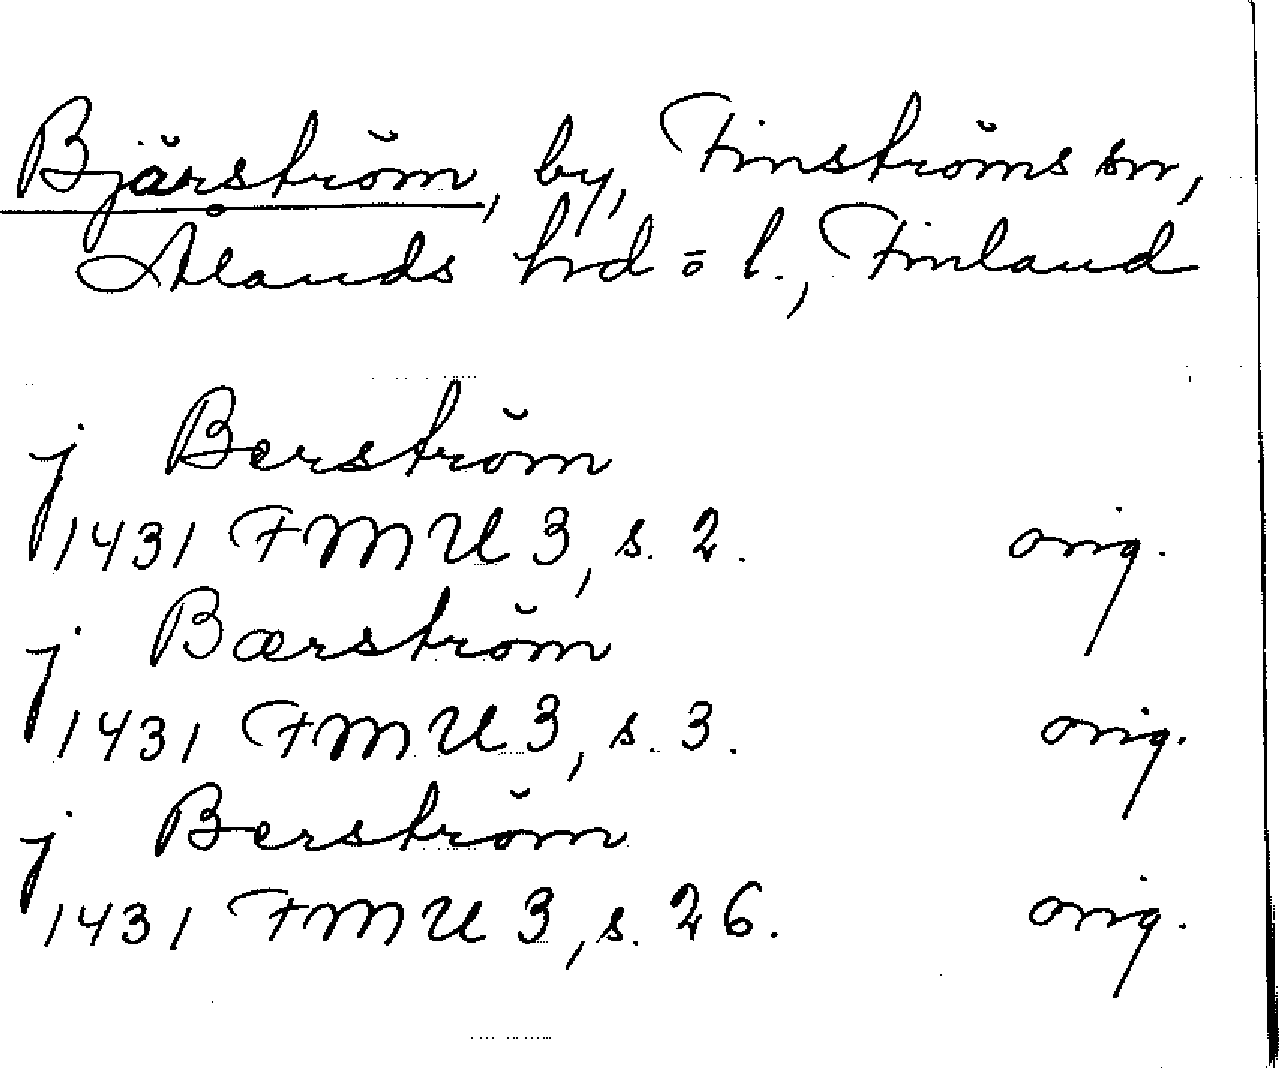 Bjärström, by, Finströms sn,
Ålands hd o l., Finland
j Berström
1431 FMU 3, s. 2. orig.
j Bærström
1431 FMU 3, s. 3. orig.
j Berström
1431 FMU 3, s. 26. orig.